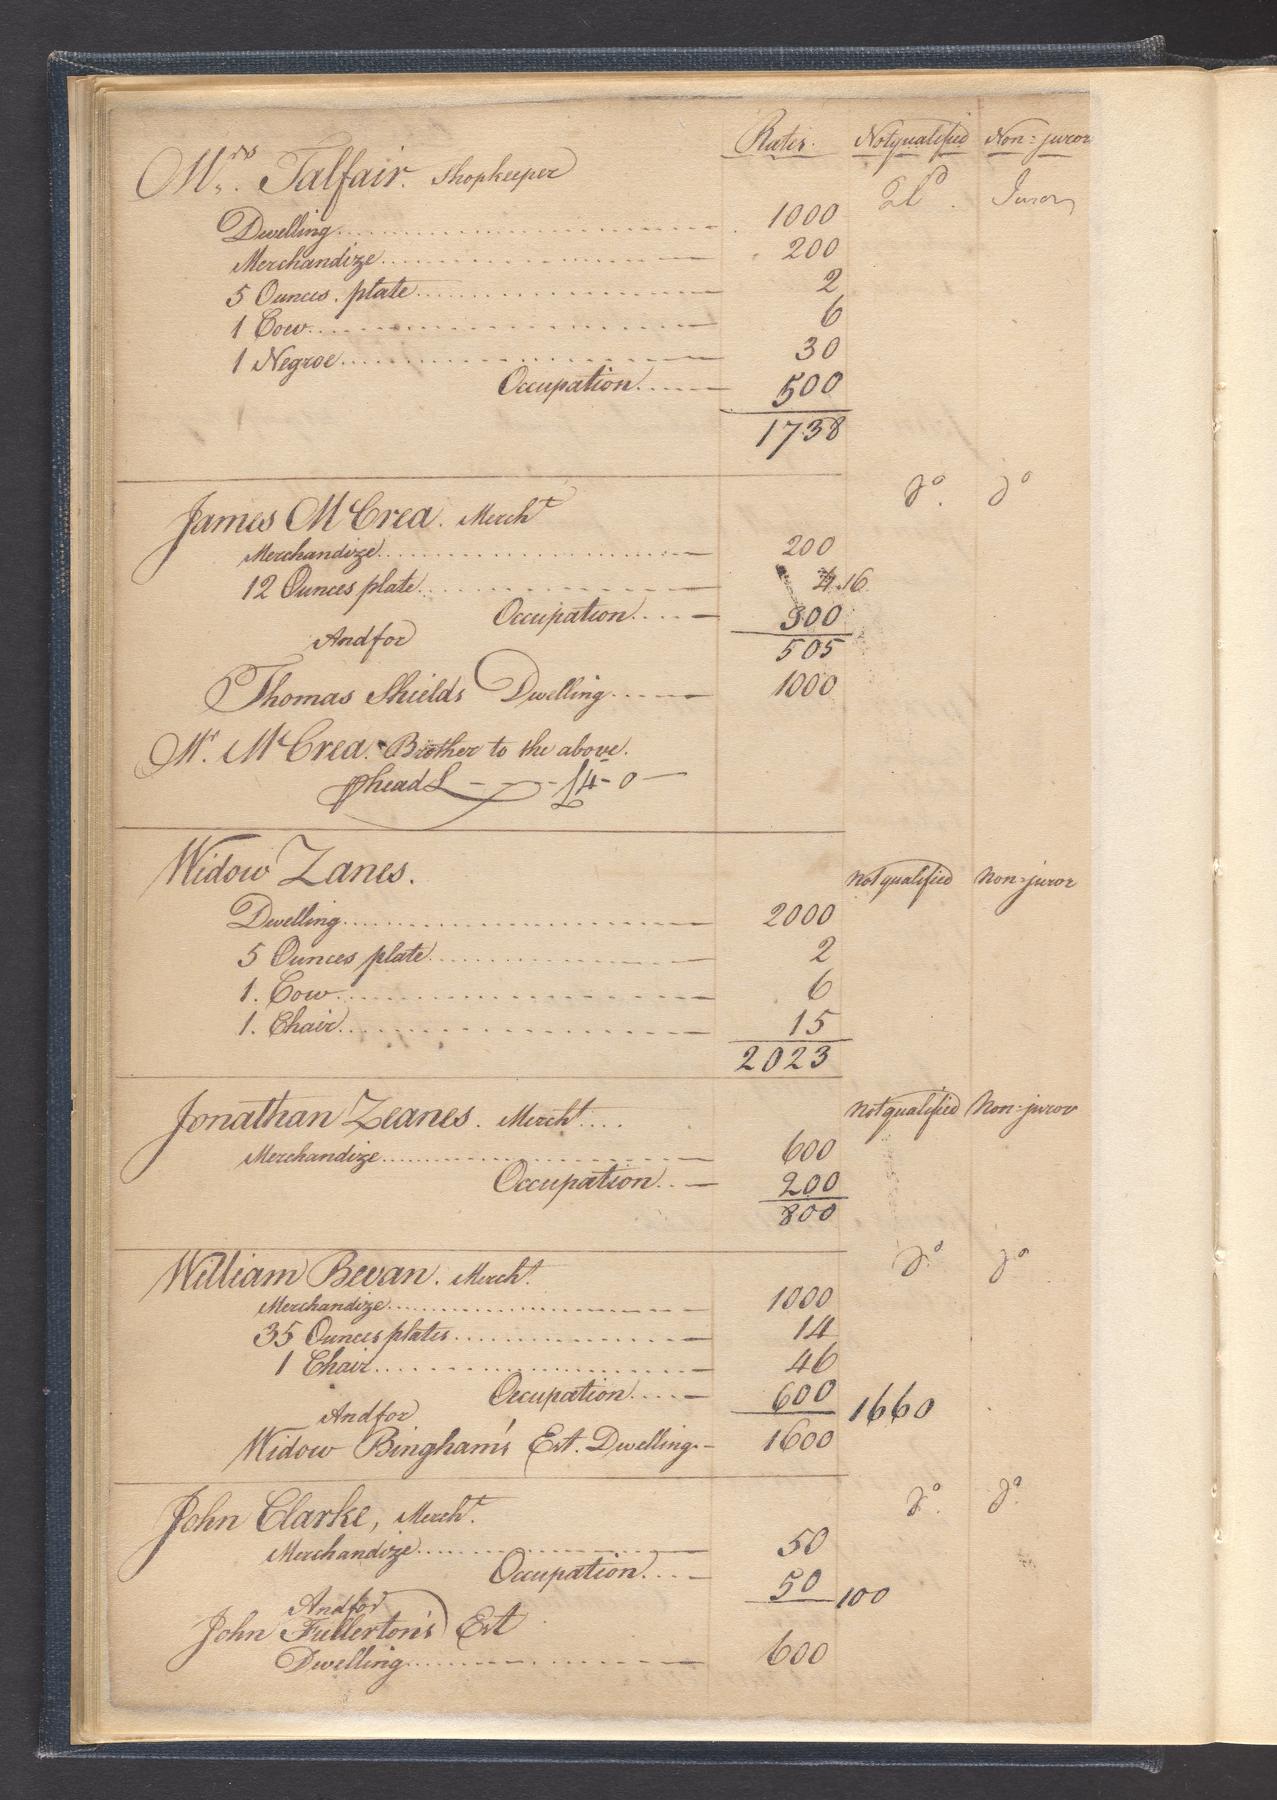 Rates. Notqualified Non=juror
Mrs. Talfair. Shopkeeper Qld. Juror
Dwelling 1000
Merchandize 200
5 Ounces. plate 2
1 Cow 6
1 Negroe 30
Occupation 500
1738
James McCrea. Mercht do. do
Merchandize 200
12 Ounces plate 4.16
Occupation 300
And for 505
Thomas Shields Dwelling 1000
Mr. McCrea. Brother to the above.
head £4-0
Widow Zanes. Notqualified Non=juror
Dwelling 2000
5 Ounces plate 2
1. Cow 6
1. Chair 15
2023
Jonathan Zeanes. Mercht. Notqualified Non=juror
Merchandize 600
Occupation 200
800
William Bevan. Mercht. do do
Merchandize 1000
35 Ounces plates 14
1 Chair 46
Occupation 600 1660
And for
Widow Bingham's Est. Dwelling 1600
John Clarke, Mercht. do. do.
Merchandize 50
Occupation 50 100
And for
John Fullerton's Est
Dwelling 600